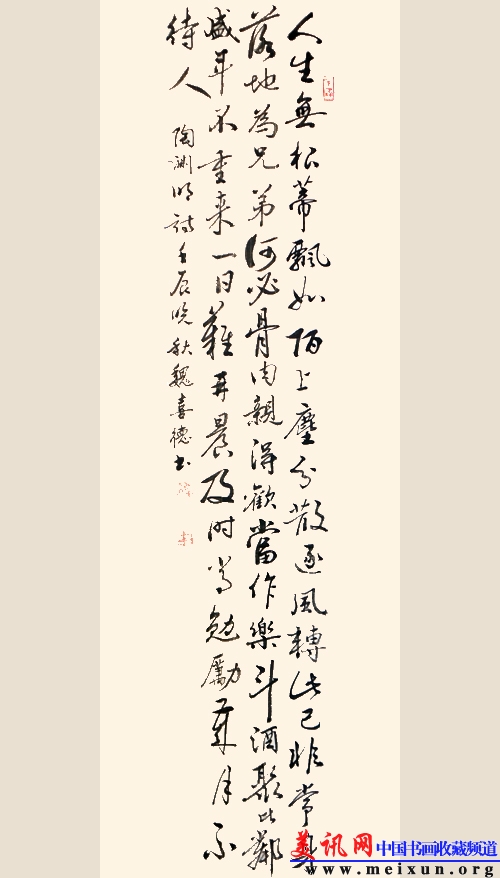 人生無根蒂飄如陌上塵分散逐風轉此已非常身
落地為兄弟何必骨肉親得歡當作樂斗酒聚比鄰
盛年不重来一日難再晨及时当勉勵歲月不
待人
陶渊明诗壬辰晚秋魏喜德书
美讯网 中国书画收藏频道
www.meixun.org